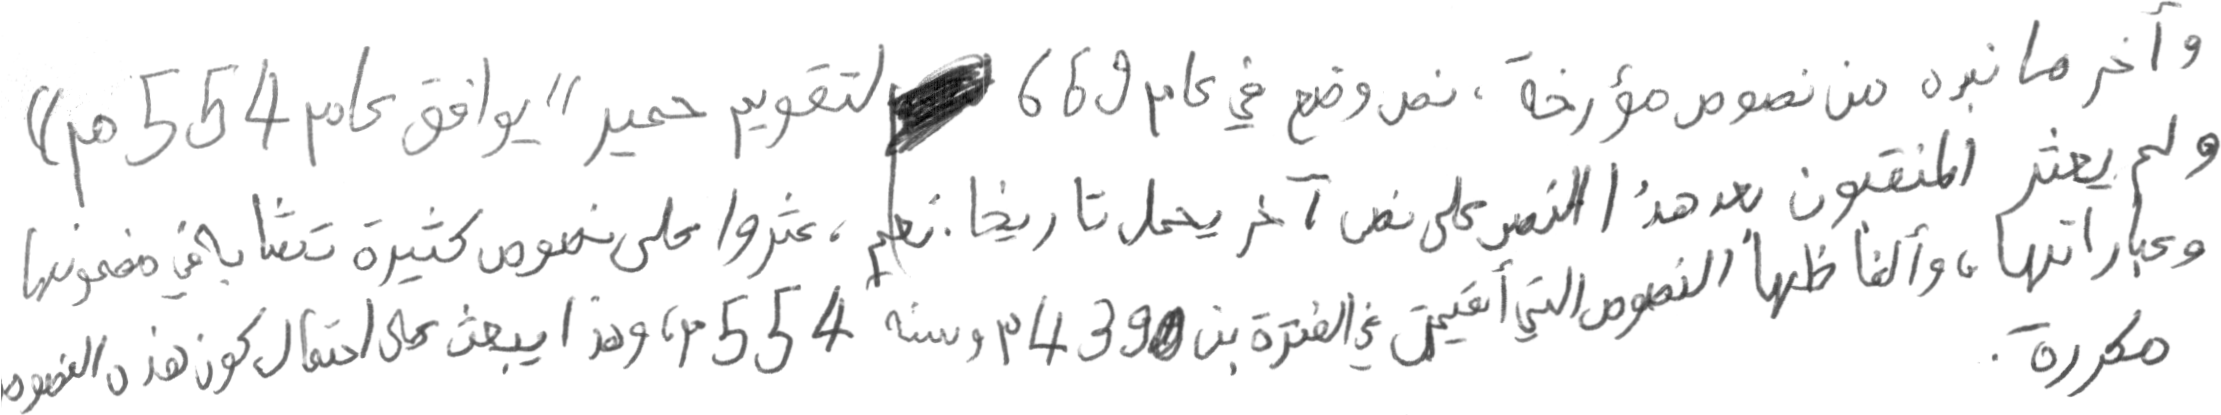 وآخر ما نبده من نصوص مؤرخة، نص وضع في عام 669 لتقويم حمير "يوافق عام 554 م"
ولم يعثر المنقبون بعد هذا النص على نص آخر يحمل تاريخا. نعم، عثروا على نصوص كثيرة تتشابه في مضمونها
وعباراتها، وألفاظها النصوص التي أقيمت في الفترة بين 439 م وسنة 554 م، وهذا يبعث على احتمال كون هذه النصوص
مكررة.